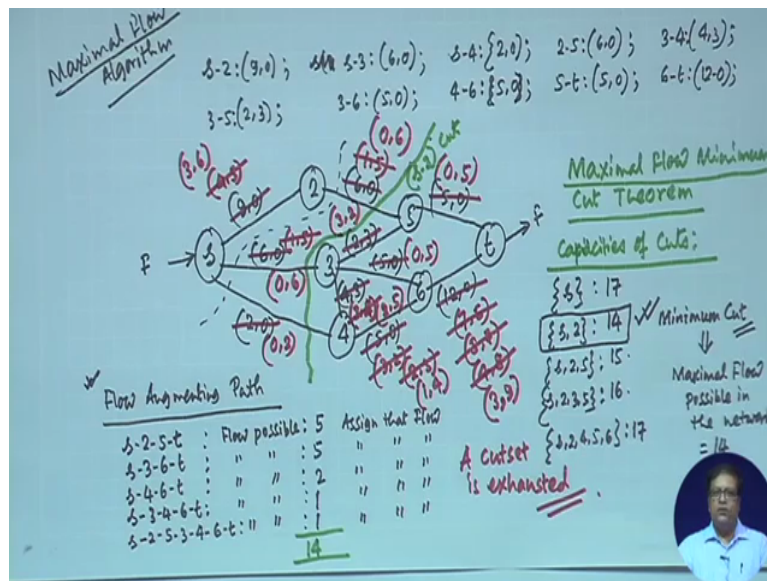 Maximal Flow
Algorithm
s-2:(9,0); s-3:(6,0); s-4:{2,0); 2-5:(6,0); 3-4:(4,3);
3-5:(2,3); 3-6:(5,0); 4-6:{5,0}; 5-t:(5,0); 6-t:(12-0);
(0,6)
Cut
(3,6)
(1,5)
(3,2)
(0,5)
(4,5)
(6,0)
(5,0)
(9,0)
2
5
F
s
(6,0)
(1,5)
(3,2)
(2,3)
3
(5,0)
(0,5)
t
F
(0,6)
(4,3)
6
(12,0)
(2,0)
4
(5,0)
(0,2)
(1,4)
(3,9)
Maximal Flow Minimum
Cut Theorem
Capacities of Cuts:
{s} : 17
{s,2} : 14 Minimum Cut
{s,2,5} : 15
{s,2,3,5} : 16
{s,2,4,5,6} : 17
Maximal Flow
possible in
the network
= 14
Flow Augmenting Path
s-2-5-t : Flow possible: 5 Assign that Flow
s-3-6-t : " " : 5 " " "
s-4-6-t : " " : 2 " " "
s-3-4-6-t: " " : 1 " " "
s-2-5-3-4-6-t: " " : 1 " " "
14
A cutset
is exhausted.